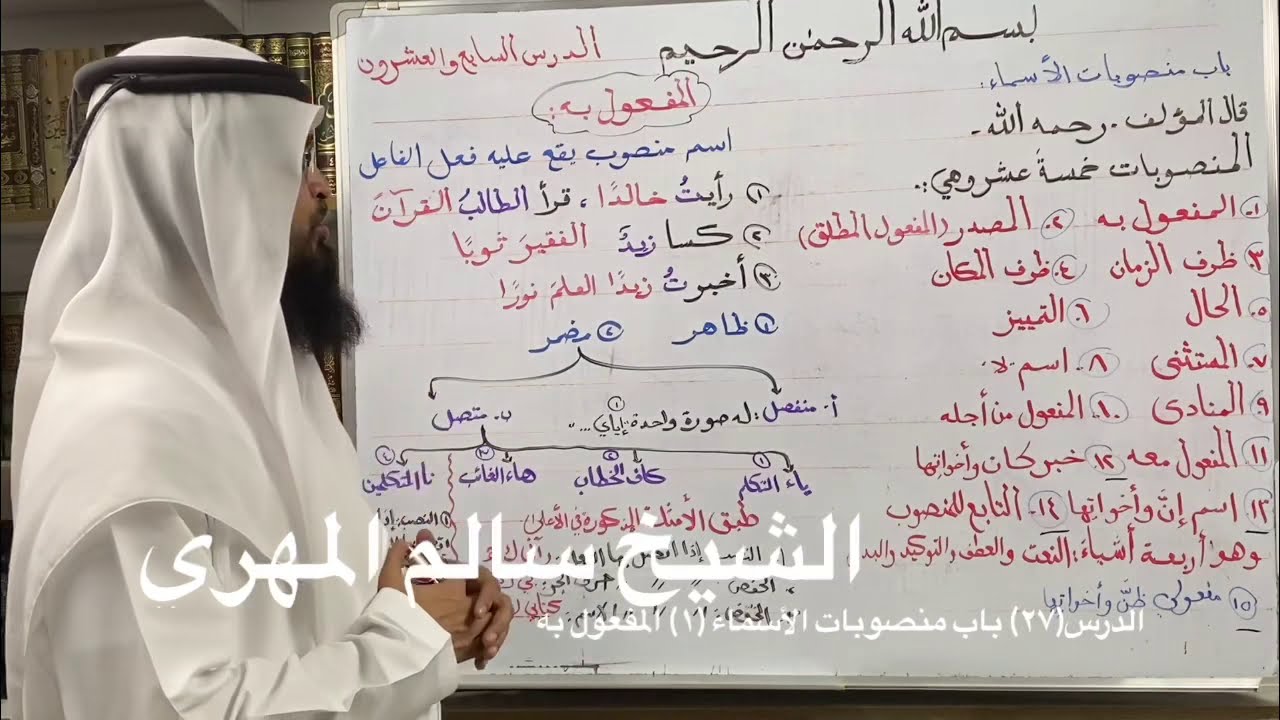 بسم الله الرحمن الرحيم
الدرس السابع والعشرون
باب منصوبات الأسماء:
قال المؤلف - رحمه الله -
المنصوبات خمسةَ عشر وهي:
١- المفعول به ٢- المصدر (المفعول المطلق)
٣- ظرف الزمان ٤- ظرف المكان
٥- الحال ٦- التمييز
٧- المستثنى ٨- اسم لا
٩- المنادى ١٠- المفعول من أجله
١١- المفعول معه ١٢- خبر كان وأخواتها
١٣- اسم إنَّ وأخواتها ١٤- التابع للمنصوب
وهو أربعة أشياء: النعت والعطف والتوكيد والبدل
١٥- مفعولي ظنَّ وأخواتها
المفعول به:
اسم منصوب يقع عليه فعل الفاعل
١ رأيتُ خالدًا ، قرأ الطالبُ القرآنَ
٢ كسا زيدٌ الفقيرَ ثوبًا
٣ أخبرتُ زيدًا العلمَ نورًا
١ ظاهر ٢ مضمر
أ. منفصل: له صورة واحدة: إياي ...
ب. متصل
١ ياء التكلم ٢ كاف الخطاب ٣ هاء الغائب ٤ نا المتكلمين
طبق الأمثلة المذكورة في الأعلى
الشيخ سالم المهري
الدرس(٢٧) باب منصوبات الأسماء (١) المفعول به